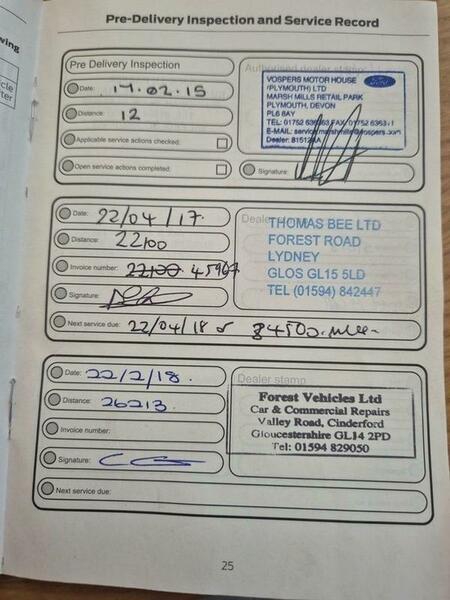 Pre-Delivery Inspection and Service Record
wing
Pre Delivery Inspection
Date: 17.02.15
Distance: 12
Applicable service actions checked:
Open service actions completed:
Authorised dealer stamp
VOSPERS MOTOR HOUSE
(PLYMOUTH) LTD
MARSH MILLS RETAIL PARK
PLYMOUTH, DEVON
PL6 8AY
Signature:
Date: 22/04/17.
Distance: 22100
Invoice number: 22100
Signature:
Next service due: 22/04/18 or
Dealer
THOMAS BEE LTD
FOREST ROAD
LYDNEY
GLOS GL15 5LD
TEL (01594) 842447
Date: 22/2/18.
Distance: 26213
Invoice number:
Signature:
Next service due:
Dealer stamp
Forest Vehicles Ltd
Car & Commercial Repairs
Valley Road, Cinderford
Gloucestershire GL14 2PD
Tel: 01594 829050
25